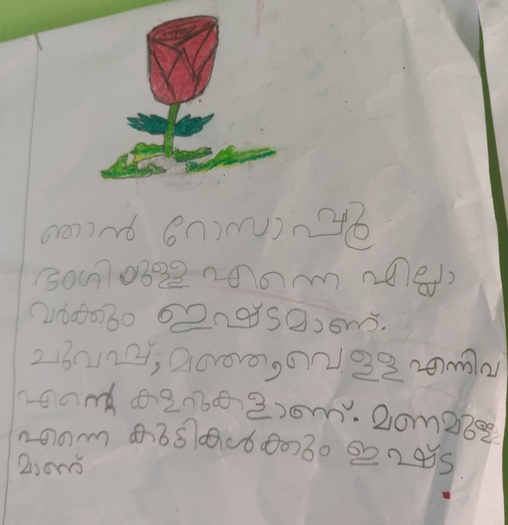 ഞാൻ റോസാപ്പൂ
ഭംഗിയുള്ള എന്നെ എല്ലാ
വർക്കും ഇഷ്ടമാണ്.
ചുവപ്പ്, മഞ്ഞ, വെള്ള എന്നിവ
എന്റെ കളറുകളാണ്. മണമുള്ള
എന്നെ കുട്ടികൾക്കും ഇഷ്ട
മാണ്